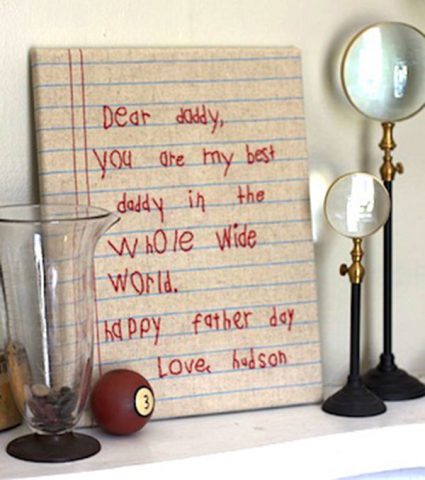 Dear daddy,
you are my best
daddy in the
whole wide
world.
happy father day
Love, hudson
3